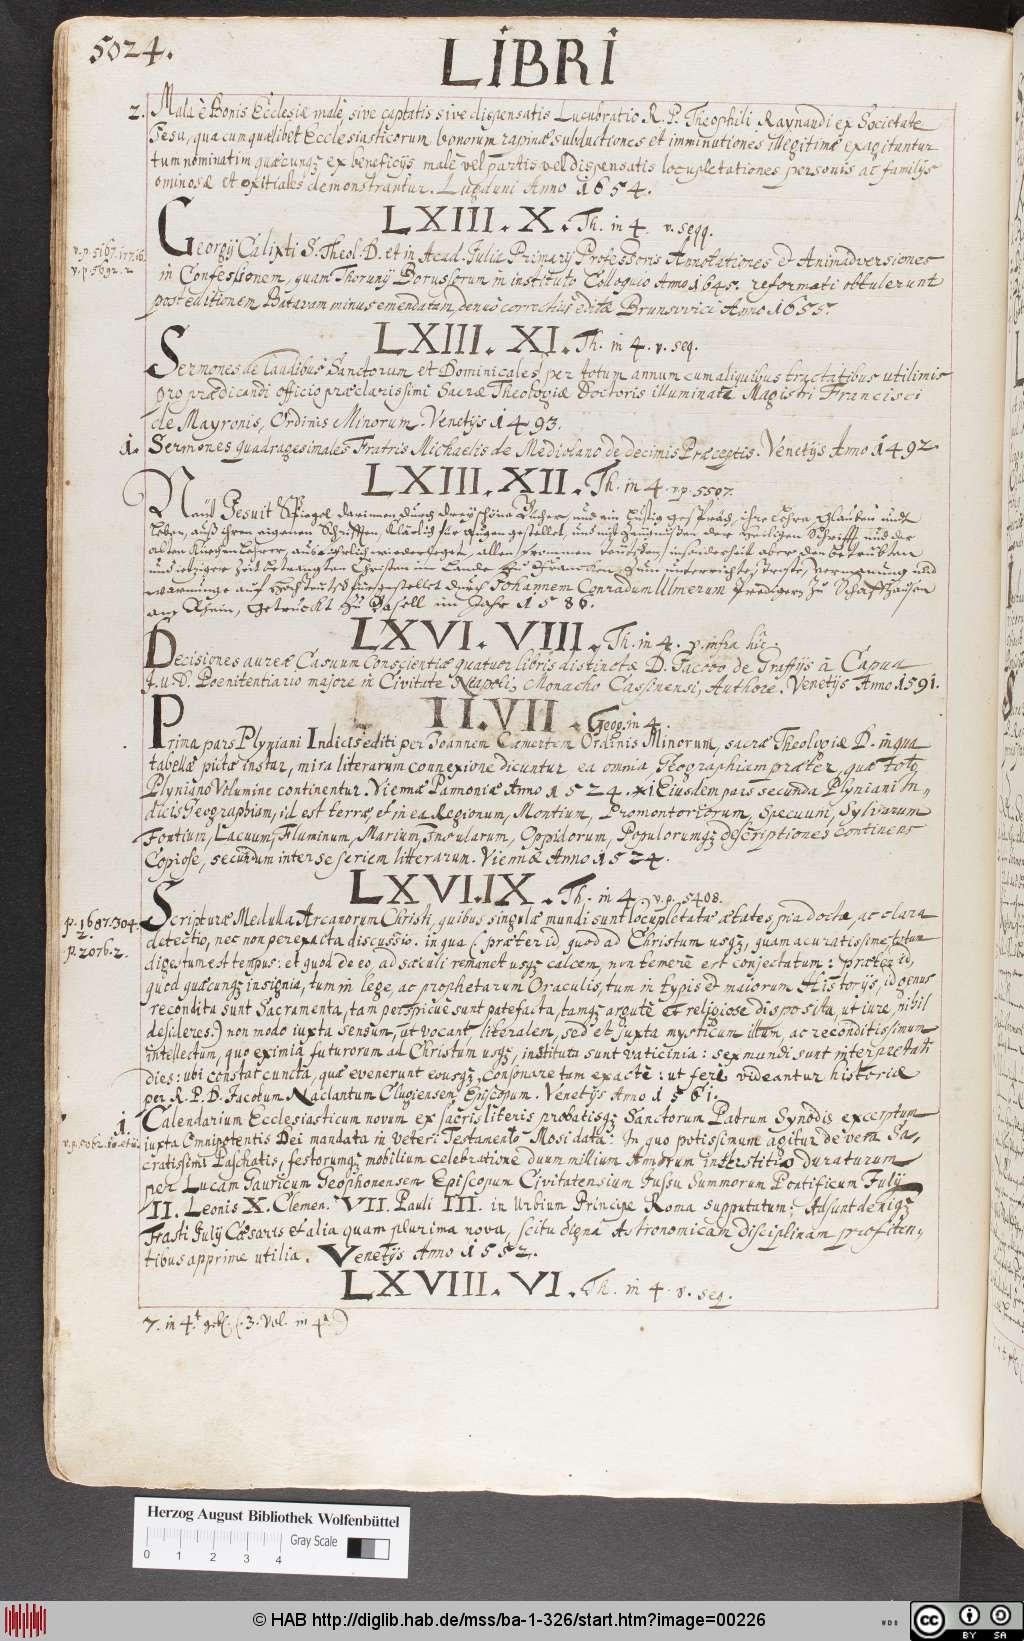 5024.
LIBRI
2. Mala è Bonis Ecclesiæ malè, sive captatis sive dispensatis Lucubratio R. P. Theophili Raynaudi ex Societate
Jesu, qua cumquælibet Ecclesiasticorum bonorum rapinæ subductiones et imminutiones illegitimæ exagitantur
tum nominatim quæcunqꝫ ex beneficijs malè vel partis vel dispensatis locupletationes personis ac familijs
ominosæ et exitiales demonstrantur. Lugduni Anno 1654.
LXIII. X. Th. in 4. v. seqq.
v. p. 5167.
v. p. 5692. 2
Georgij Calixti S. Theol. D. et in Acad. Julia Primarij Professoris Annotationes et Animadversiones
in Confessionem, quam Thorunij Borussorum in instituto Colloquio Anno 1645. reformati obtulerunt
post editionem Batavam minus emendatam, denuo correctius editæ Brunsvvici Anno 1655.
LXIII. XI. Th. in 4. v. seq.
Sermones de Laudibus Sanctorum et Dominicales per totum annum cum aliquibus tractatibus utilimis
pro prædicandi officio præclarissimi Sacræ Theologiæ Doctoris illuminati Magistri Francisci
de Mayronis, Ordinis Minorum. Venetijs 1493.
1. Sermones quadragesimales Fratris Michaelis de Mediolano de decimis Præceptis. Venetijs Anno 1492.
LXIII. XII. Th. in 4. v. p. 5507.
Jesuit Spiegel darinnen durch drey schöne Bücher, und ein Lustig gespräch, ihre Lehre, Glauben undt
Leben, auß ihren eigenen Schrifften, klärlich für Augen gestellet, und mit Zeugnußen der Heiligen Schrifft und der
alten Kirchen Lehrer, widerlegt, allen frommen Teutschen, insonderheit aber den betrübten
und ietziger Zeit betrangten Christen im Lande zu Francken, zum unterricht, trost, vermanung und
warnunge auf Hochteutsch fürgestellet durch Johannem Conradum Ulmerum Prediger zu Schaffhausen
am Rhein, Getruckt zu Basell im Jahr 1586.
LXVI. VIII. Th. in 4. v. infra hîc.
Decisiones aureæ Casuum Conscientiæ quatuor libris distinctæ D. Jacobo de Graffijs à Capua
J. U. D. Poenitentiario majore in Civitate Neapolis, Monacho Cassinensi, Authore. Venetijs Anno 1591.
II. VII. Geog. in 4.
Prima pars Plyniani Indicis editi per Joannem Camertem Ordinis Minorum, sacræ Theologiæ D. in qua
tabellæ pictæ instar, mira literarum connexione dicuntur ea omnia Geographiam præter, quæ toto
Plyniano Volumine continentur. Viennæ Pannoniæ Anno 1524. Ejusdem pars secunda Plyniani In-
dicis Geographiam, id est terræ, et in ea Regionum, Montium, Promontoriorum, Specuum, Sylvarum
Fontium, Lacuum, Fluminum, Marium, Insularum, Oppidorum, Populorumqꝫ descriptiones continens
Copiose, secundum inter se seriem litterarum. Viennæ Anno 1524.
LXVI. IX. Th. in 4. v. p. 5408.
p. 1687. 304.
2
p. 2076. 2.
Scripturæ Medulla Arcanorum Christi, quibus singulæ mundi sunt locupletatæ ætates, pia docta, ac clara
detectio, nec non perexacta discussio. in qua (præter id, quod ad Christum usqꝫ, quam accuratissime totum
digestum est tempus: et quod de eo, ad sæculi remanet usqꝫ calcem, non temerè est conjectatum: præter id,
quod quæcunqꝫ insignia, tum in lege, ac prophetarum Oraculis, tum in typis et maiorum Historijs, id genus
recondita sunt Sacramenta, tam perspicuè sunt patefacta, tamqꝫ argutè et religiose disposita, ut iure, nihil
desideres.) non modo iuxta sensum, ut vocant, literalem, sed et juxta mysticum illum, ac reconditissimum
intellectum, quo eximia futurorum ad Christum usqꝫ, instituta sunt vaticinia: sex mundi sunt interpretati
dies: ubi constat cuncta, quæ evenerunt eousqꝫ, consonare tam exactè: ut ferè videantur historiæ
per R. P. D. Jacobum Naclantum Clugiensem Episcopum. Venetijs Anno 1561.
1. Calendarium Ecclesiasticum novum ex sacris literis, probatisqꝫ Sanctorum Patrum Synodis exceptum
iuxta Omnipotentis Dei mandata in Veteri Testamento Mosi data: In quo potissimum agitur de vera Sa-
cratissimi Paschatis, festorumqꝫ mobilium celebratione duum millium Annorum interstitio duraturum
per Lucam Gauricum Geophonensem Episcopum Civitatensium Jussu Summorum Pontificum Julij
II. Leonis X. Clemen. VII. Pauli III. in Urbium Principe Roma supputatum. Adsunt deniqꝫ
Frasti Julij Cæsaris et alia quam plurima nova, scitu digna Astronomicam disciplinam profiten-
tibus apprime utilia. Venetijs Anno 1552.
LXVIII. VI. Th. in 4. v. seq.
7. in 4.t (3. Vol. in 4.)
Herzog August Bibliothek Wolfenbüttel
Gray Scale
0 1 2 3 4
© HAB http://diglib.hab.de/mss/ba-1-326/start.htm?image=00226
WDB
cc BY SA